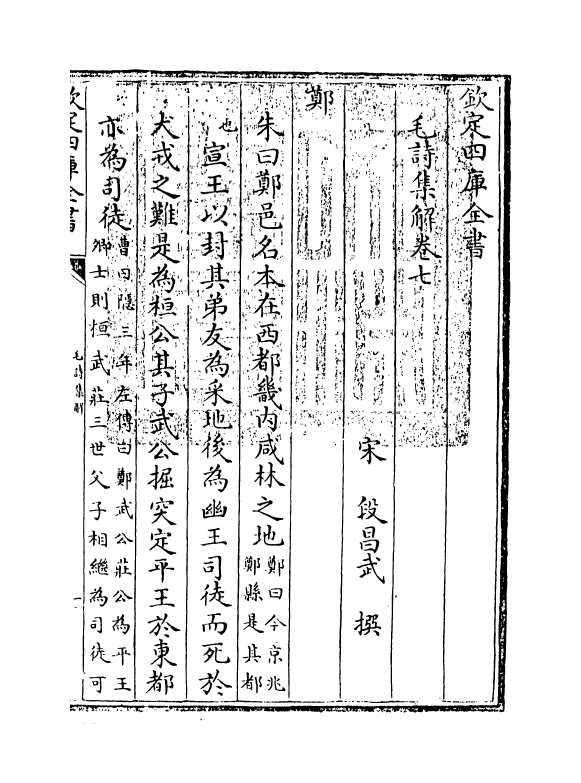 欽定四庫全書
毛詩集解卷七
宋 段昌武 撰
鄭
朱曰鄭邑名本在西都畿內咸林之地鄭曰今京兆鄭縣是其都
也宣王以封其弟友為采地後為幽王司徒而死於
犬戎之難是為桓公其子武公掘突定平王於東都
亦為司徒曹曰隱三年左傳曰鄭武公莊公為平王卿士則桓武莊三世父子相繼為司徒可
欽定四庫全書
毛詩集解
一